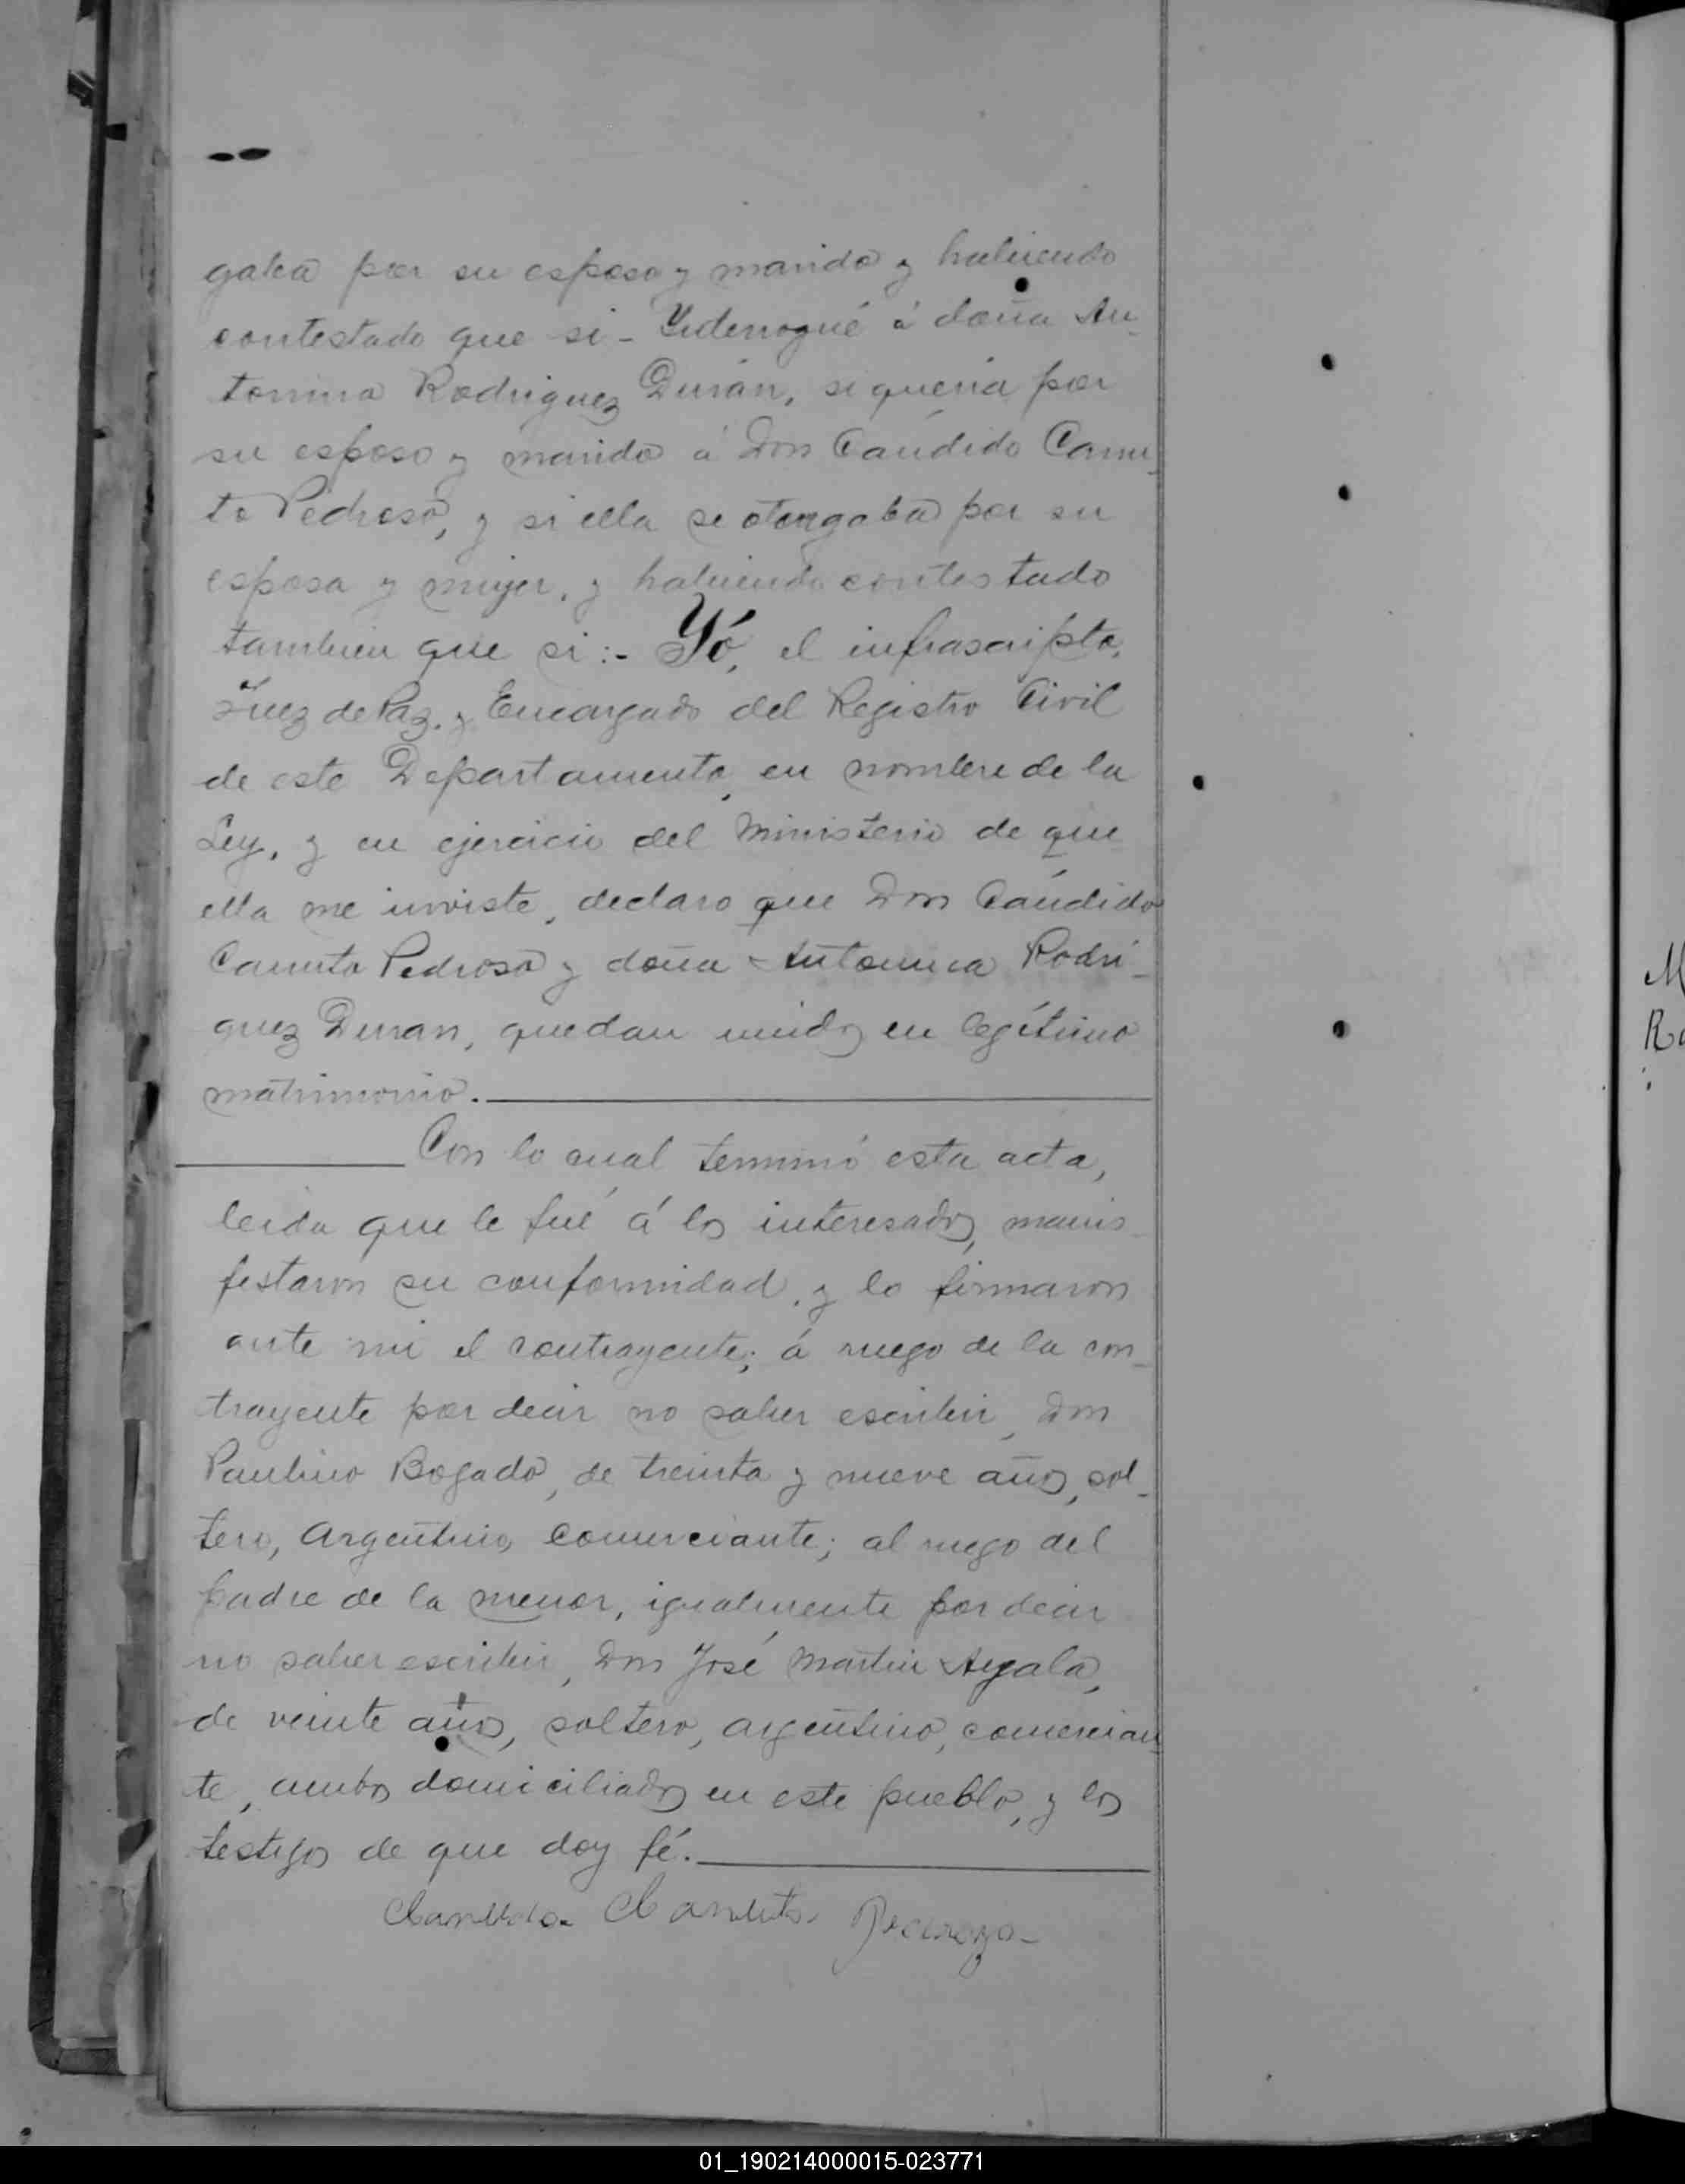 gaba por su esposo y marido y habiendo
contestado que si - Interrogué á doña An-
tonina Rodriguez Durán, si queria por
su esposo y marido á Don Cándido Canu-
to Pedroso, y si ella se otorgaba por su
esposa y mujer, y habiendo contestado
tambien que si:- Yó, el infrascripto,
Juez de Paz y Encargado del Registro Civil
de este Departamento, en nombre de la
Ley, y en ejercicio del Ministerio de que
ella me inviste, declaro que Don Cándido
Canuto Pedroso y doña Antonina Rodri-
guez Duran, quedan unidos en legítimo
matrimonio.
Con lo cual terminó esta acta,
leida que le fué á los interesados, manis
festaron su conformidad, y lo firmaron
ante mi el contrayente; á ruego de la con-
trayente por decir no saber escribir, Don
Paulino Bogado, de treinta y nueve años, sol-
tero, Argentino, Comerciante; al ruego del
padre de la menor, igualmente por decir
no saber escribir, Don José Martin Ayala,
de veinte años, soltero, argentino, comercian-
te, ambos domiciliados en este pueblo, y los
testigos de que doy fé.
Candido Canuto Pedrozo
M
R
01_190214000015-023771